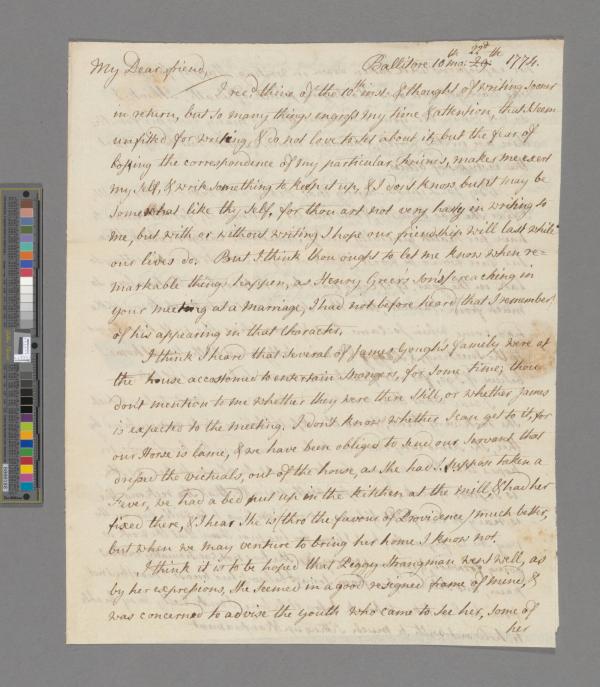 My Dear friend, Ballitore 10th mo: 22d 1774.
I recd thine of the 10th inst & thought of writing sooner
in return, but so many things engross my time & attention, that I seem
unfitted for writing, & do not love to set about it, but the fear of
losing the correspondence of my particular friends, makes me exert
my self, & write something to keep it up, & I don't know but it may be
somewhat like thy self, for thou art not very hasty in writing to
me, but with or without writing I hope our friendship will last while
our lives do. But I think thou ought to let me know when re=
markable things happen, as Henry Greer's Son's preaching in
your meeting at a marriage, I had not before heard (that I remember)
of his appearing in that Character.
I think I heard that several of James Goughs family were at
the house accustomed to entertain strangers, for some time; thou
don't mention to me whether they were there still, or whether James
is expected to the meeting. I don't know whether I can get to it, for
our Horse is lame, & we have been obliged to send our Servant that
dressed the victuals, out of the house, as she had I suppose taken a
Fever, we had a bed put up in the kitchen at the mill, & had her
fixed there, & I hear She is (thro the favour of Providence) much better,
but when we may venture to bring her home I know not.
I think it is to be hoped that Peggy Strangman went well, as
by her expressions, She seemed in a good resigned frame of mind, &
was concerned to advise the youth who came to see her, some of
her